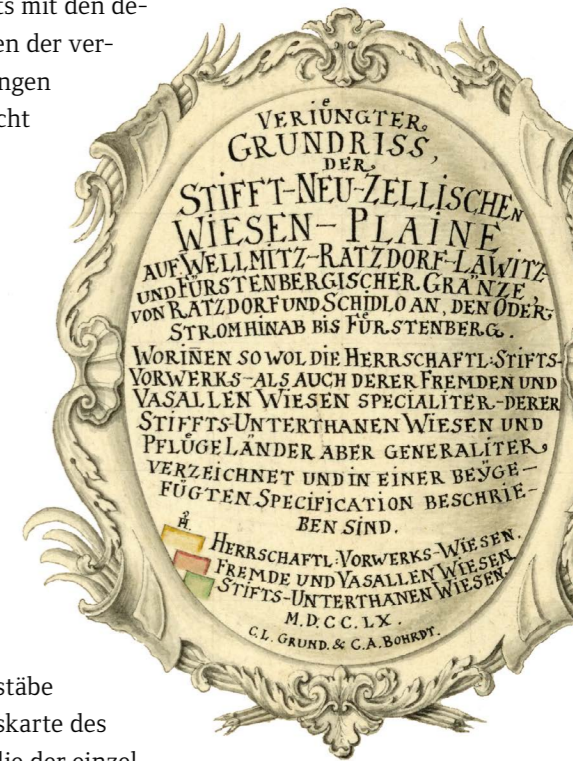 ts mit den de-
en der ver-
ngen
cht
VERIÜNGTER
GRUNDRISS,
DER
STIFFT-NEU-ZELLISCHEN
WIESEN-PLAINE
AUF WELLMITZ-RATZDORF-LAWITZ-
UND FÜRSTENBERGISCHER GRÄNZE,
VON RATZDORF UND SCHIDLO AN, DEN ODER-
STROM HINAB BIS FÜRSTENBERG.
WORINEN SO WOL DIE HERRSCHAFTL: STIFTS-
VORWERKS-ALS AUCH DERER FREMDEN UND
VASALLEN WIESEN SPECIALITER-DERER
STIFFTS-UNTERTHANEN WIESEN UND
PFLÜGE LÄNDER ABER GENERALITER
VERZEICHNET UND IN EINER BEŸGE-
FÜGTEN SPECIFICATION BESCHRIE-
BEN SIND.
HERRSCHAFTL: VORWERKS-WIESEN.
FREMDE UND VASALLEN WIESEN.
STIFTS-UNTERTHANEN WIESEN.
M.D.CC.LX.
C.L. GRUND. & C.A. BOHRDT.
stäbe
skarte des
die der einzel-